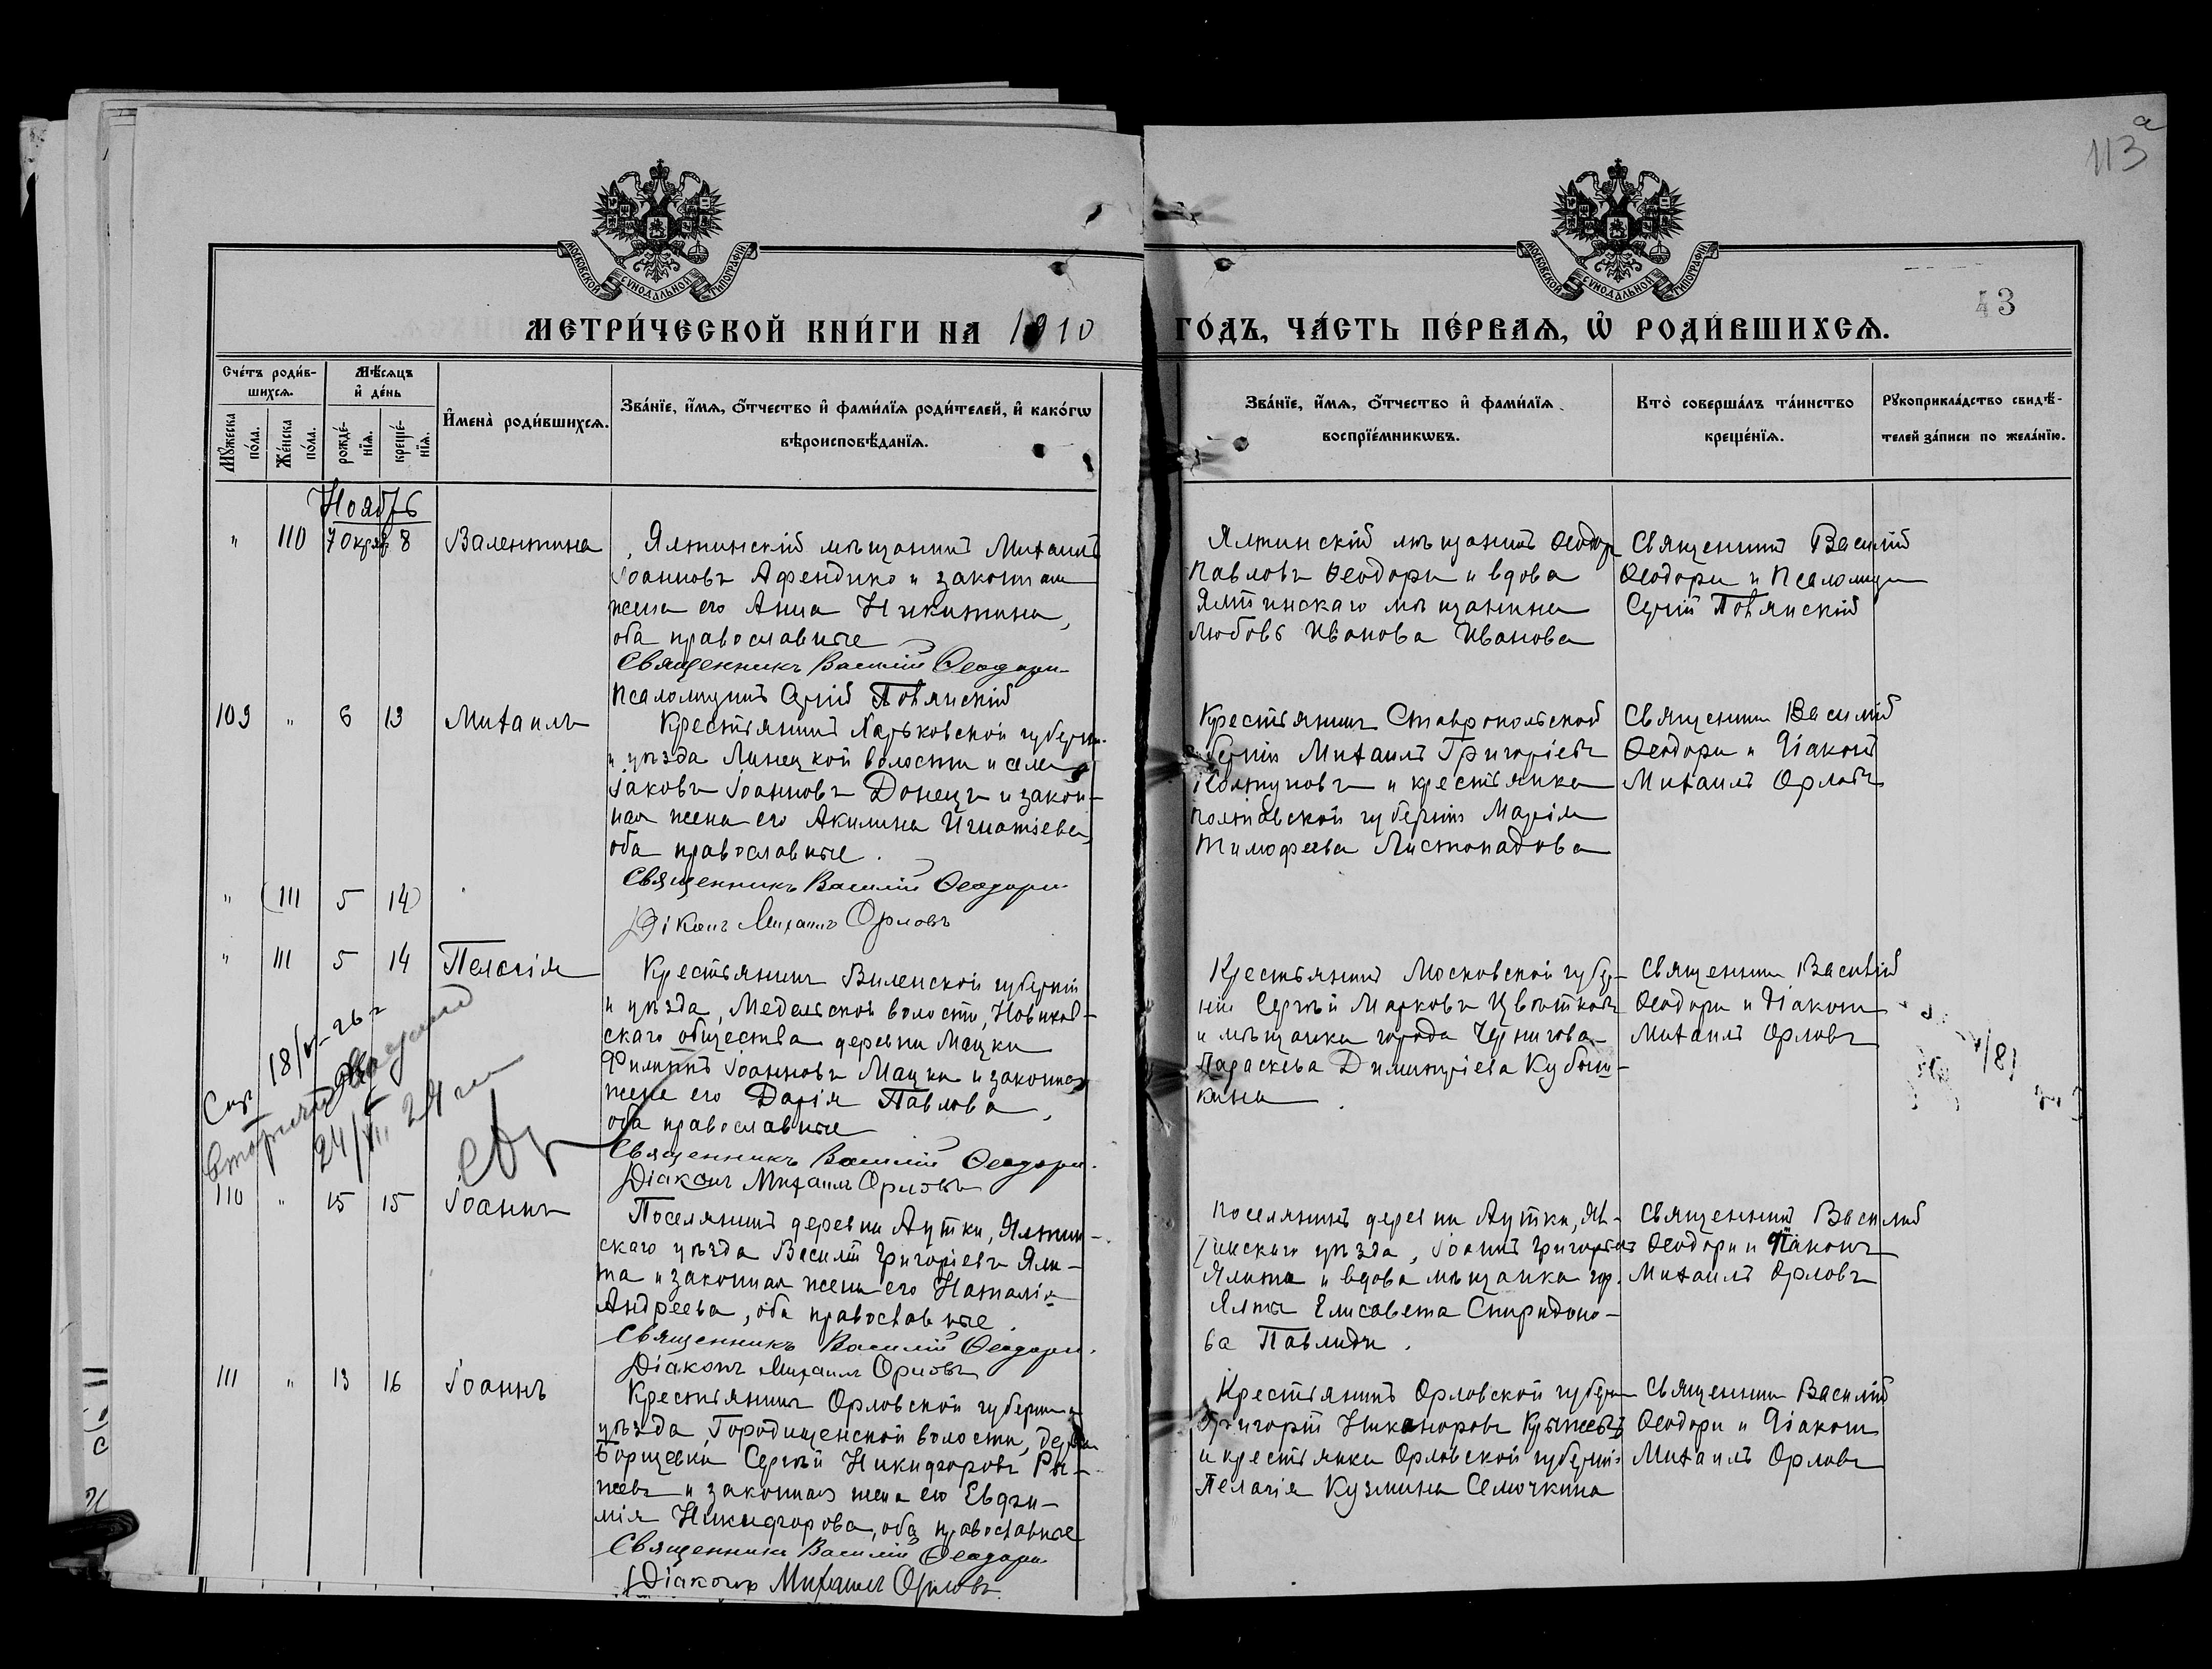 113а
43
МОСКОВСКОЙ СѴНОДАЛЬНОЙ ТИПОГРАФІИ
МОСКОВСКОЙ СѴНОДАЛЬНОЙ ТИПОГРАФІИ
МЕТРИ́ЧЕСКОЙ КНИ́ГИ НА 1910 ГО́ДЪ, ЧА́СТЬ ПЕ́РВАѦ, Ѡ҆ РОДИ́ВШИХСѦ.
Сче́тъ роди́в-
шихсѧ.
Мꙋ́жеска по́ла.
Же́нска по́ла.
Мѣ́сѧцъ
и҆ де́нь
рожде́-
нїѧ.
креще́-
нїѧ.
И҆мена̀ роди́вшихсѧ.
Зва́нїе, и҆́мѧ, ѻ҆́тчество и҆ фами́лїѧ роди́телей, и҆ како́гѡ
вѣроисповѣ́данїѧ.
Зва́нїе, и҆́мѧ, ѻ҆́тчество и҆ фами́лїѧ
воспрїе́мникѡвъ.
Кто̀ соверша́лъ та́инство
креще́нїѧ.
Рꙋкоприкла́дство свидѣ́-
телей за́писи по жела́нїю.
Ноябь
" 110 7 Октяб 8 Валентина
Ялтинскій мѣщанинъ Михаилъ
Іоанновъ Афендико и законная
жена его Анна Никитина,
оба православные
Священникъ Василій Ѳеодори
Псаломщикъ Сергій
Ялтинскій мѣщанинъ Ѳеодоръ
Павловъ Ѳеодори и вдова
Ялтинскаго мѣщанина
Любовь Иванова Иванова
Священникъ Василій
Ѳеодори и Псаломщи
Сергій
109 " 6 13 Михаилъ
Крестьянинъ Харьковской губерніи
и уѣзда Липецкой волости и села
Іаковъ Іоанновъ Донецъ и закон-
ная жена его Акилина Игнатіева,
оба православные.
Священникъ Василій Ѳеодори
Діконъ Михаилъ Орловъ
Крестьянинъ Ставропольской
губерніи Михаилъ Григоріевъ
Колтуновъ и крестьянка
Полтавской губерніи Марія
Тимофеева Листопадова
Священникъ Василій
Ѳеодори и Діаконъ
Михаилъ Орловъ
" (111 5 14)
" 111 5 14 Пелагія
Крестьянинъ Виленской губерніи
и уѣзда, Медельской волости, Новиков-
скаго общества деревни Мацки
Филиппъ Іоанновъ Мацки и законная
жена его Дарія Павлова,
оба православные
Священникъ Василій Ѳеодори.
Діаконъ Михаилъ Орловъ
Крестьянинъ Московской губер-
ніи Сергѣй Марковъ Цвѣтковъ
и мѣщанка города Чернигова
Параскева Димитріева Кубыш-
кина
Священникъ Василій
Ѳеодори и Діаконъ
Михаилъ Орловъ
18/V-26 г
24/VII 24
110 " 15 15 Іоаннъ
Поселянинъ деревни Аутки, Ялтин-
скаго уѣзда Василій Григоріевъ Ял-
та и законная жена его Наталія
Андреева, оба православные.
Священникъ Василій Ѳеодори.
Діаконъ Михаилъ Орловъ
Поселянинъ деревни Аутки, Ял-
тинскаго уѣзда, Іоаннъ Григоріевъ
Ялта и вдова мѣщанка гор.
Ялты Елисавета Спиридоно-
ва Павлиди.
Священникъ Василій
Ѳеодори и Діаконъ
Михаилъ Орловъ
111 " 13 16 Іоаннъ
Крестьянинъ Орловской губерніи и
уѣзда Городищенской волости, дерев
Борщевки Сергѣй Никифоровъ Ры-
жевъ и законная жена его Евфи-
мія Никифорова, оба православные
Священникъ Василій Ѳеодори
Діаконъ Михаилъ Орловъ.
Крестьянинъ Орловской губерн
Григорій Никаноровъ
и крестьянка Орловской губерніи
Пелагія Кузмина Семочкина
Священникъ Василій
Ѳеодори и Діаконъ
Михаилъ Орловъ